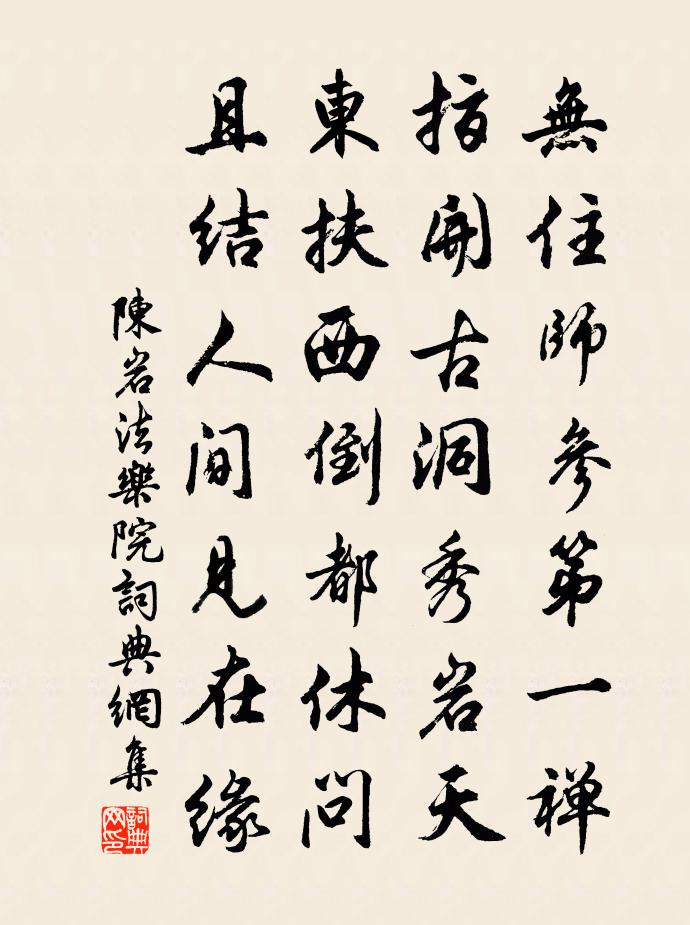 無住師參第一禅
指開古洞秀岩天
東扶西倒都休問
且结人间見在缘
陳岩法樂院詞典網集
詞典网印